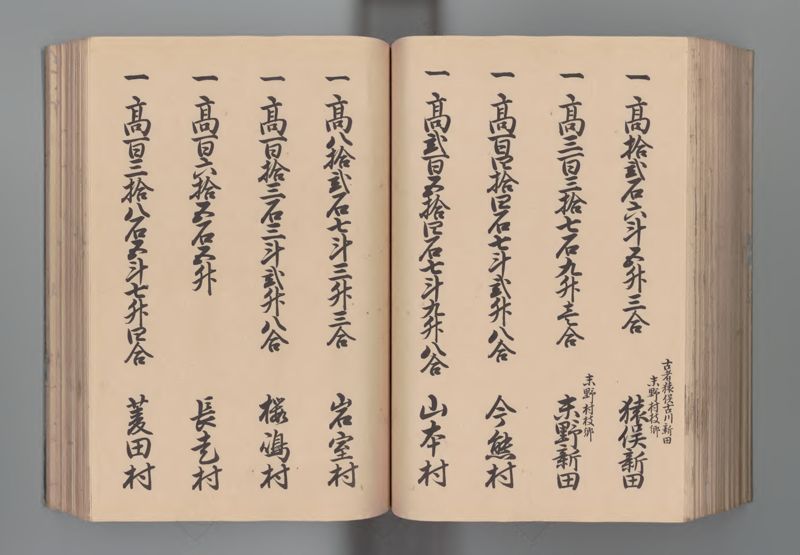 古者猿俣古川新田
末野村枝郷
一高拾弐石六斗五升三合 猿俣新田
末野村枝郷
一高三百三拾七石九升壱合 末野新田
一高百四拾四石七斗弐升八合 今熊村
一高弐百五拾四石七斗九升八合 山本村
一高八拾弐石七斗三升三合 岩室村
一高百拾三石二斗弐升八合 櫻嶋村
一高百六拾五石五升 長走村
一高百三拾八石五斗七升四合 菱田村